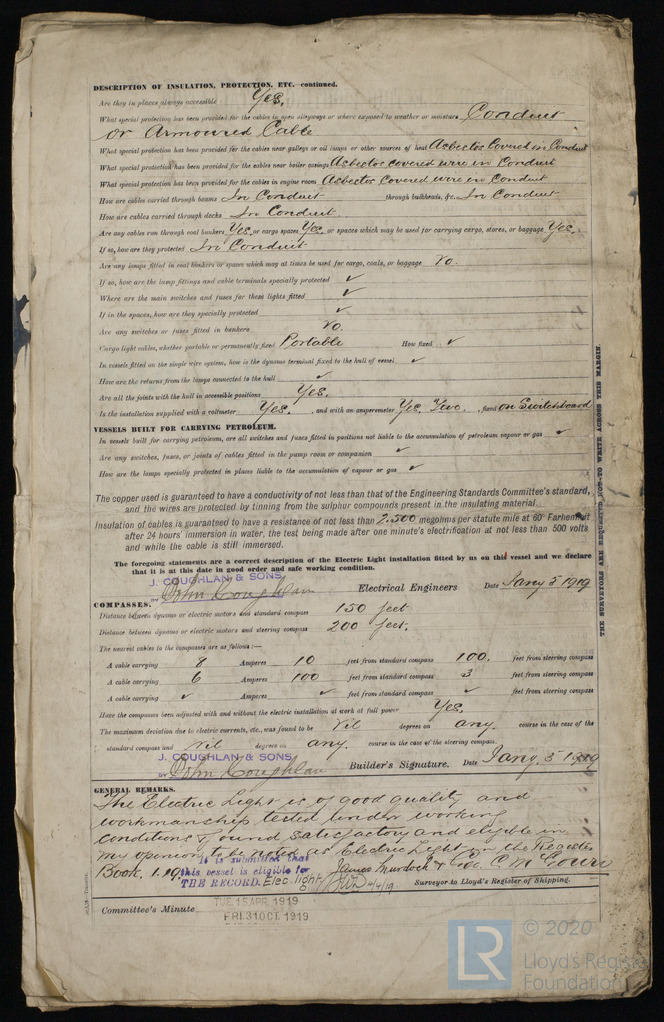 DESCRIPTION OF INSULATION, PROTECTION, ETC.—continued.
Are they in places always accessible Yes.
What special protection has been provided for the cables in open alleyways or where exposed to weather or moisture Conduit
or Armoured Cable
What special protection has been provided for the cables near galleys or oil lamps or other sources of heat Asbestos Covered in Conduit
What special protection has been provided for the cables near boiler casings Asbestos covered wire in Conduit
What special protection has been provided for the cables in engine room Asbestos Covered wire in Conduit
How are cables carried through beams In Conduit through bulkheads, &c. In Conduit
How are cables carried through decks In Conduit.
Are any cables run through coal bunkers Yes or cargo spaces Yes or spaces which may be used for carrying cargo, stores, or baggage Yes.
If so, how are they protected In Conduit
Are any lamps fitted in coal bunkers or spaces which may at times be used for cargo, coals, or baggage No.
If so, how are the lamp fittings and cable terminals specially protected ✓
Where are the main switches and fuses for these lights fitted ✓
If in the spaces, how are they specially protected ✓
Are any switches or fuses fitted in bunkers No.
Cargo light cables, whether portable or permanently fixed Portable How fixed ✓
In vessels fitted on the single wire system, how is the dynamo terminal fixed to the hull of vessel ✓
How are the returns from the lamps connected to the hull ✓
Are all the joints with the hull in accessible positions Yes.
Is the installation supplied with a voltmeter Yes. , and with an amperemeter Yes. Two. , fixed on Switchboard
VESSELS BUILT FOR CARRYING PETROLEUM.
In vessels built for carrying petroleum, are all switches and fuses fitted in positions not liable to the accumulation of petroleum vapour or gas ✓
Are any switches, fuses, or joints of cables fitted in the pump room or companion ✓
How are the lamps specially protected in places liable to the accumulation of vapour or gas ✓
The copper used is guaranteed to have a conductivity of not less than that of the Engineering Standards Committee's standard,
and the wires are protected by tinning from the sulphur compounds present in the insulating material.
Insulation of cables is guaranteed to have a resistance of not less than 2.500 megohms per statute mile at 60° Farhenheit
after 24 hours' immersion in water, the test being made after one minute's electrification at not less than 500 volts
and while the cable is still immersed.
The foregoing statements are a correct description of the Electric Light installation fitted by us on this vessel and we declare
that it is at this date in good order and safe working condition.
J. COUGHLAN & SONS
BY John Coughlan Electrical Engineers Date Jany 5 1919
COMPASSES.
Distance between dynamo or electric motors and standard compass 150 feet
Distance between dynamo or electric motors and steering compass 200 feet.
The nearest cables to the compasses are as follows:—
A cable carrying 8 Amperes 10 feet from standard compass 100. feet from steering compass
A cable carrying 6 Amperes 100 feet from standard compass 3 feet from steering compass
A cable carrying ✓ Amperes ✓ feet from standard compass ✓ feet from steering compass
Have the compasses been adjusted with and without the electric installation at work at full power Yes.
The maximum deviation due to electric currents, etc., was found to be Nil degrees on any. course in the case of the
standard compass and nil degrees on any. course in the case of the steering compass.
J. COUGHLAN & SONS
BY John Coughlan Builder's Signature. Date Jany. 5 1919
GENERAL REMARKS.
The Electric Light is of good quality and
workmanship tested under working
conditions & found satisfactory and eligible in
my opinion to be noted as Electric Light in the Register
Book. 1.19.
It is submitted that
this vessel is eligible for
THE RECORD. Elec. light
James Murdoch & Geo. C. M
4/4/19
Surveyor to Lloyd's Register of Shipping.
Committee's Minute TUE 15 APR. 1919
FRI. 31 OCT 1919
THE SURVEYORS ARE REQUESTED NOT TO WRITE ACROSS THIS MARGIN.
LR © 2020
Lloyd's Register
Foundation